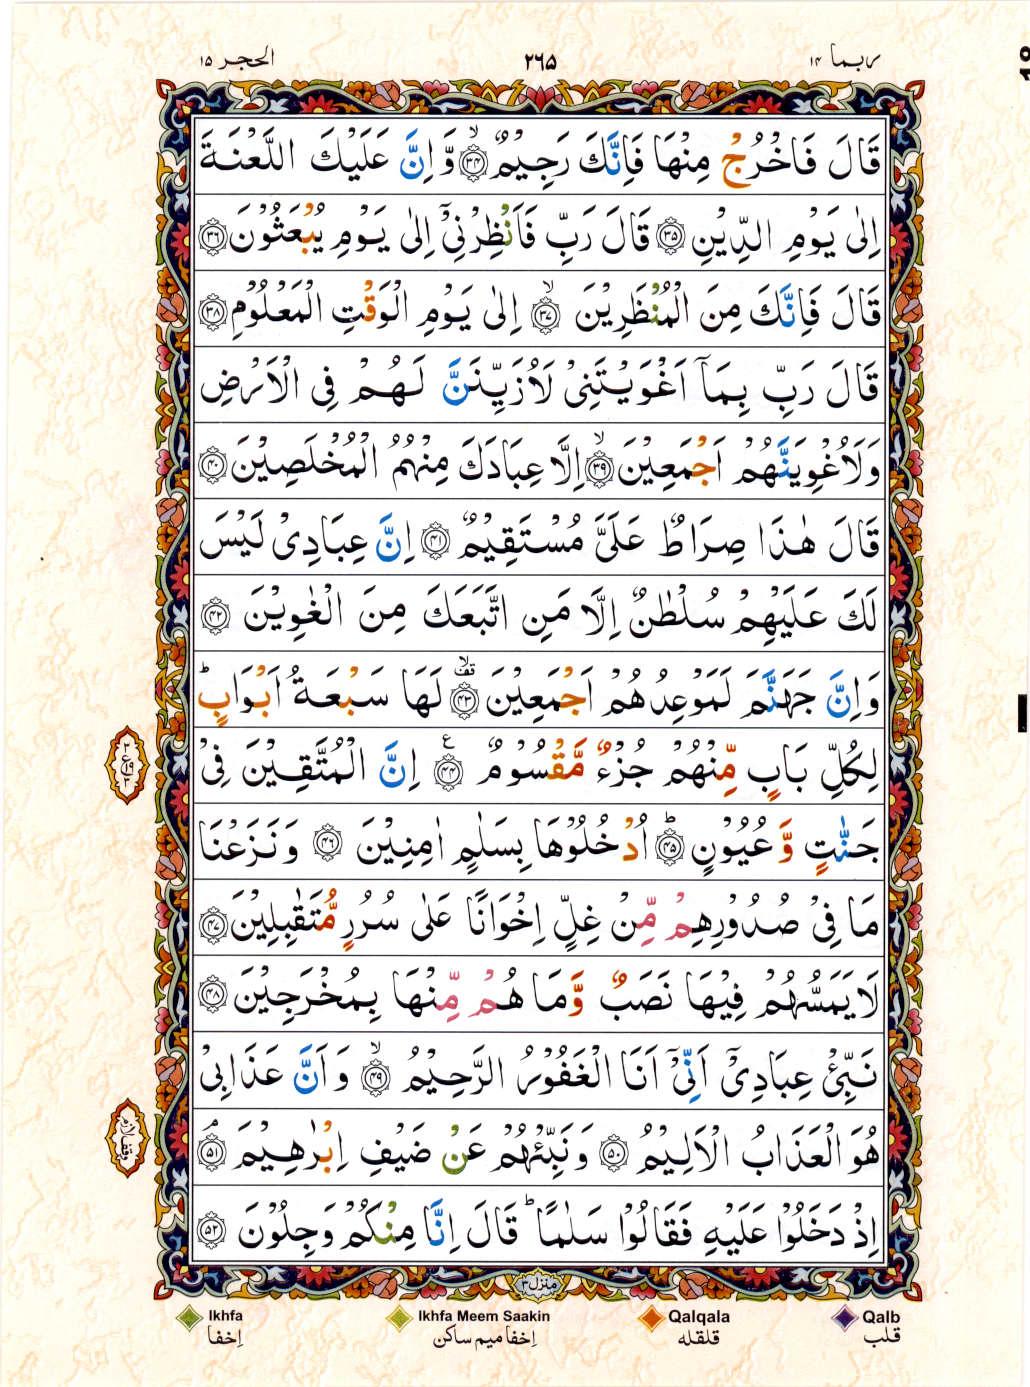 ربما ١٤
٢٦٥
الحجر ١٥
قَالَ فَاخْرُجْ مِنْهَا فَاِنَّكَ رَجِيْمٌ ۙ﴿۳۴﴾ وَّ اِنَّ عَلَيْكَ اللَّعْنَةَ
اِلٰى يَوْمِ الدِّيْنِ ﴿۳۵﴾ قَالَ رَبِّ فَاَنْظِرْنِيْۤ اِلٰى يَوْمِ يُبْعَثُوْنَ ﴿۳۶﴾
قَالَ فَاِنَّكَ مِنَ الْمُنْظَرِيْنَ ۙ﴿۳۷﴾ اِلٰى يَوْمِ الْوَقْتِ الْمَعْلُوْمِ ﴿۳۸﴾
قَالَ رَبِّ بِمَاۤ اَغْوَيْتَنِيْ لَاُزَيِّنَنَّ لَهُمْ فِى الْاَرْضِ
وَلَاُغْوِيَنَّهُمْ اَجْمَعِيْنَ ۙ﴿۳۹﴾ اِلَّا عِبَادَكَ مِنْهُمُ الْمُخْلَصِيْنَ ﴿۴۰﴾
قَالَ هٰذَا صِرَاطٌ عَلَىَّ مُسْتَقِيْمٌ ﴿۴۱﴾ اِنَّ عِبَادِيْ لَيْسَ
لَكَ عَلَيْهِمْ سُلْطٰنٌ اِلَّا مَنِ اتَّبَعَكَ مِنَ الْغٰوِيْنَ ﴿۴۲﴾
وَاِنَّ جَهَنَّمَ لَمَوْعِدُهُمْ اَجْمَعِيْنَ ۙقف﴿۴۳﴾ لَهَا سَبْعَةُ اَبْوَابٍ ؕ
لِكُلِّ بَابٍ مِّنْهُمْ جُزْءٌ مَّقْسُوْمٌ ﴿۴۴﴾ ع اِنَّ الْمُتَّقِيْنَ فِيْ
جَنّٰتٍ وَّ عُيُوْنٍ ؕ﴿۴۵﴾ اُدْخُلُوْهَا بِسَلٰمٍ اٰمِنِيْنَ ﴿۴۶﴾ وَنَزَعْنَا
مَا فِيْ صُدُوْرِهِمْ مِّنْ غِلٍّ اِخْوَانًا عَلٰى سُرُرٍ مُّتَقٰبِلِيْنَ ﴿۴۷﴾
لَا يَمَسُّهُمْ فِيْهَا نَصَبٌ وَّمَا هُمْ مِّنْهَا بِمُخْرَجِيْنَ ﴿۴۸﴾
نَبِّئْ عِبَادِيْۤ اَنِّيْۤ اَنَا الْغَفُوْرُ الرَّحِيْمُ ۙ﴿۴۹﴾ وَ اَنَّ عَذَابِيْ
هُوَ الْعَذَابُ الْاَلِيْمُ ﴿۵۰﴾ وَنَبِّئْهُمْ عَنْ ضَيْفِ اِبْرٰهِيْمَ ۘ﴿۵۱﴾
اِذْ دَخَلُوْا عَلَيْهِ فَقَالُوْا سَلٰمًا ؕ قَالَ اِنَّا مِنْكُمْ وَجِلُوْنَ ﴿۵۲﴾
وقف لازم
منزل ٣
Ikhfa Ikhfa Meem Saakin Qalqala Qalb
اِخفا اِخفا ميم ساكن قلقله قلب